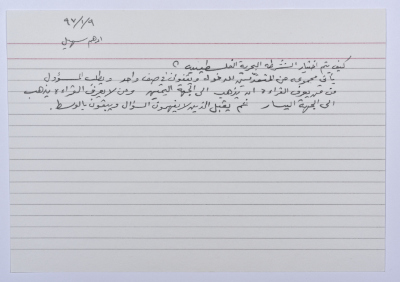 ٩٦/١/٩
ادهم سهيلي
كيف يتم اختيار الشرطة البحرية الفلسطينيه ؟
يأتي مجموعه من المتقدمين للدخول ويقفون في صف واحد ويطلب المسؤول
من من يعرف القراءه ان يذهب الى الجهة اليمين ومن لا يعرف القراءة يذهب
الى الجهة اليسار ثم يقبل الذين لا يفهمون السؤال ويبقون بالوسط.